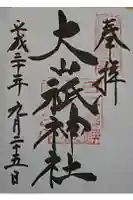 奉拝
大山祇神社
平成二十三年九月二十五日